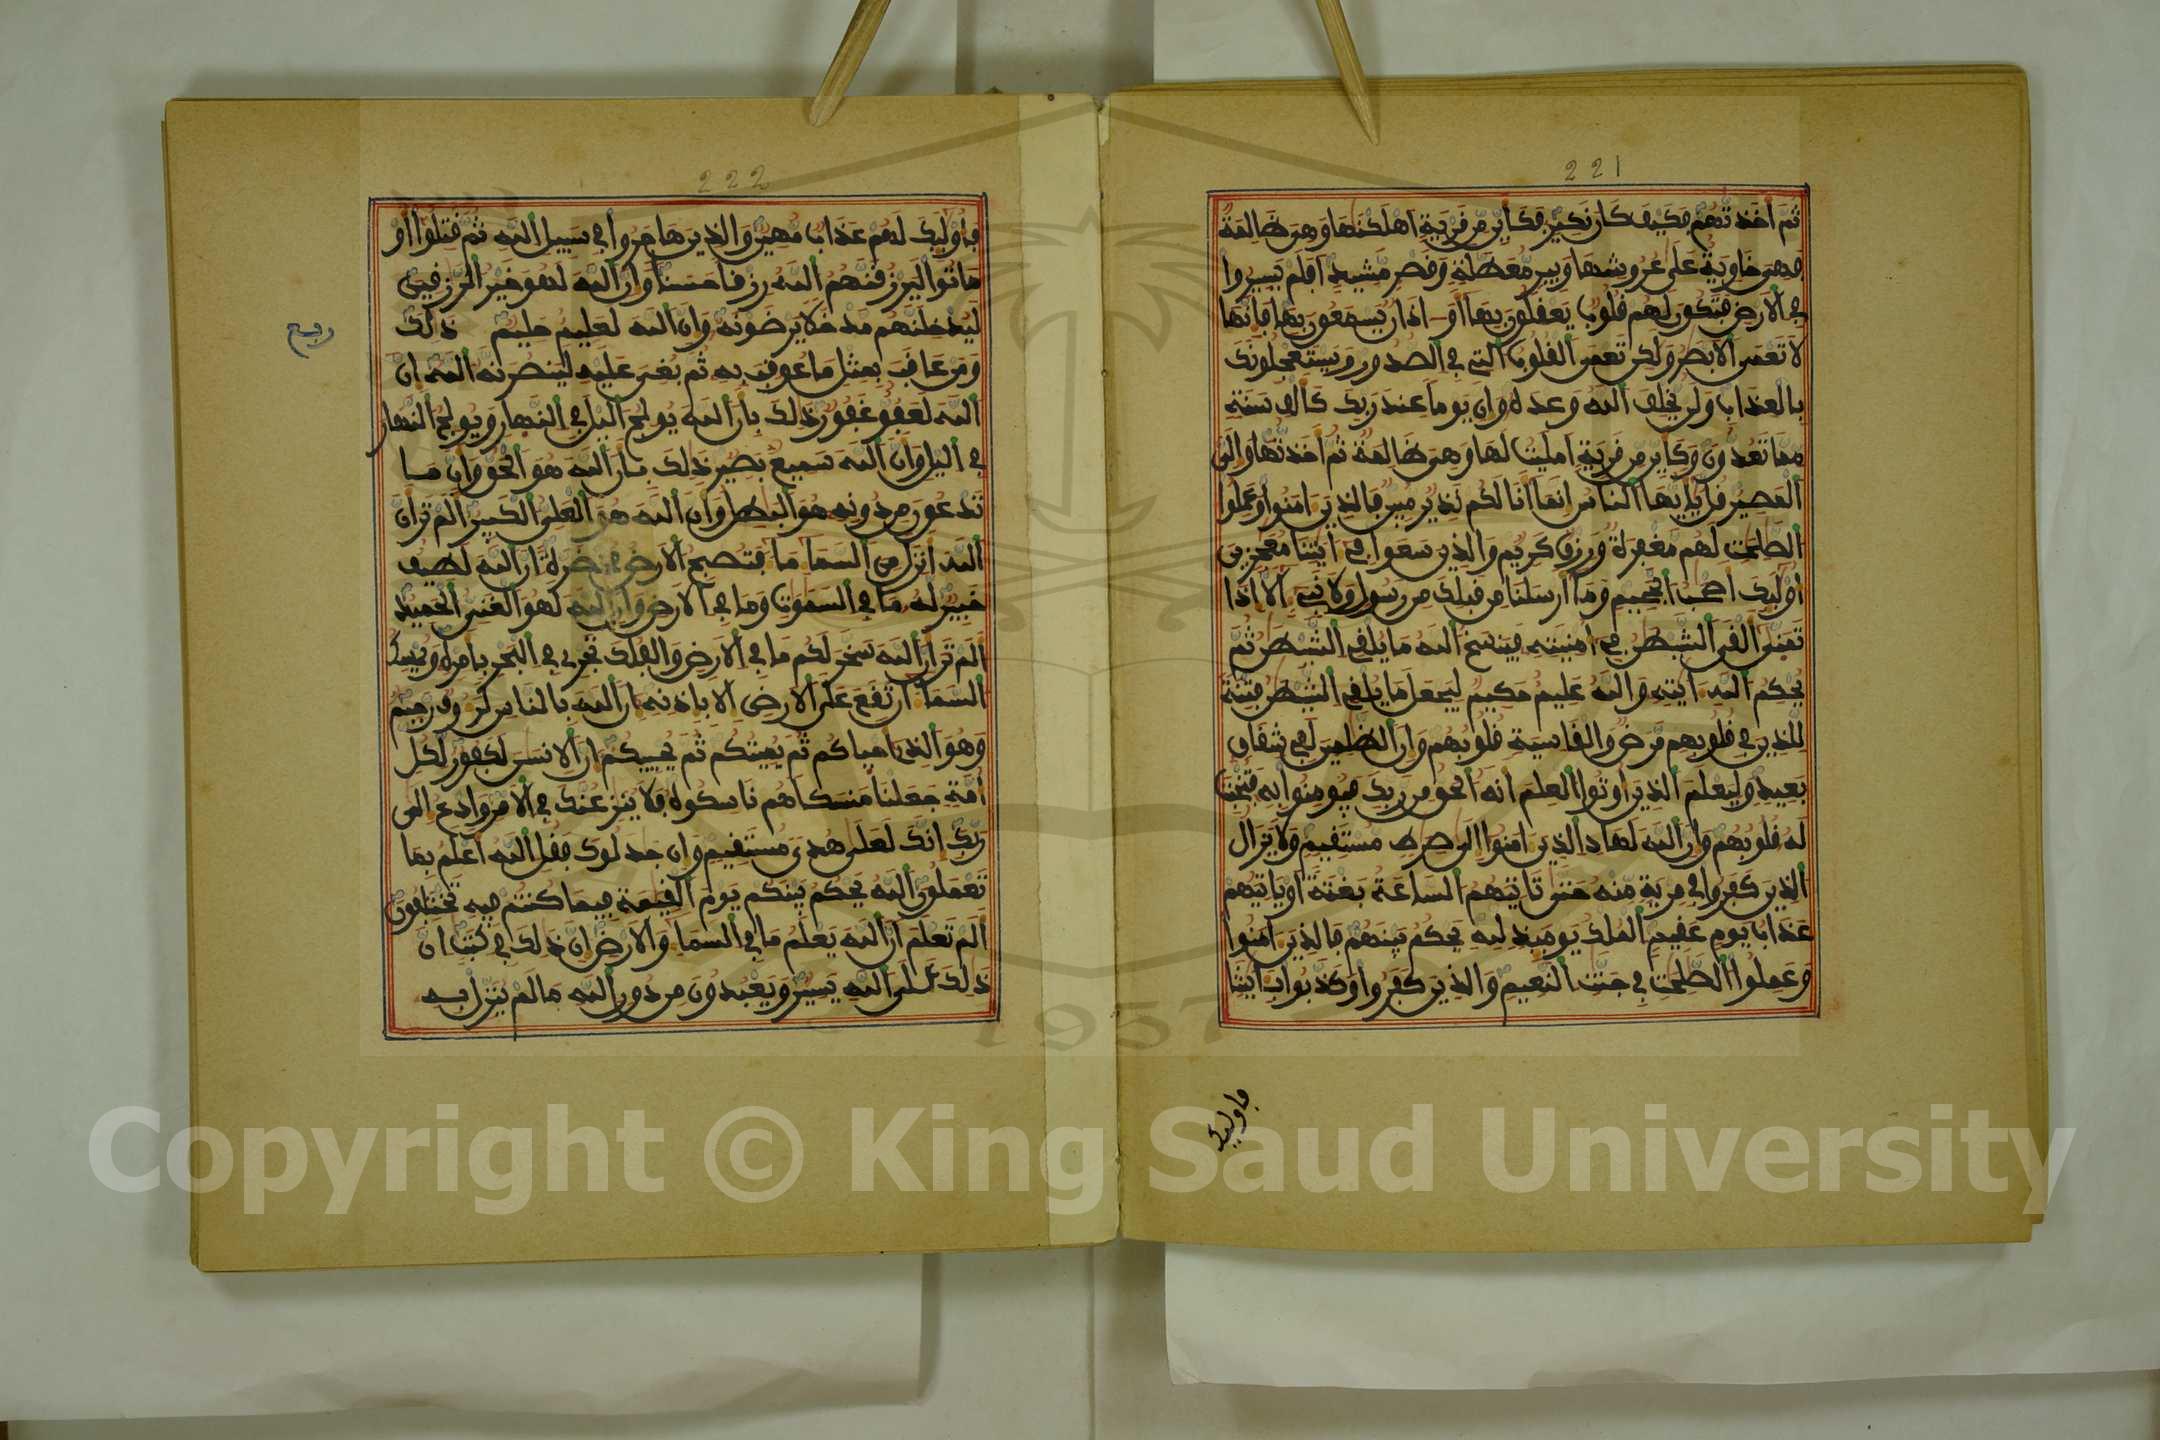 221
ثم اخذتهم فكيف كان نكير فكاين من قرية اهلكنها وهى ظالمة
فهى خاوية على عروشها وبير معطلة وقصر مشيد افلم يسيروا
في الارض فتكون لهم قلوب يعقلون بها او اذان يسمعون بها فانها
لا تعمى الابصر ولكن تعمى القلوب التي في الصدور ويستعجلونك
بالعذاب ولن يخلف الله وعده وان يوما عند ربك كالف سنة
مما تعدون وكاين من قرية امليت لها وهى ظالمة ثم اخذتها والى
المصير قل يايها الناس انما انا لكم نذير مبين فالذين امنوا وعملوا
الصلحت لهم مغفرة ورزق كريم والذين سعوا في ايتنا معجزين
اوليك اصحب الجحيم وما ارسلنا من قبلك من رسول ولا نبيء الا اذا
تمنى القى الشيطن في امنيته فينسخ الله ما يلقي الشيطن ثم
يحكم الله ايته والله عليم حكيم ليجعل ما يلقي الشيطن فتنة
للذين في قلوبهم مرض والقاسية قلوبهم وان الظلمين لفي شقاق
بعيد وليعلم الذين اوتوا العلم انه الحق من ربك فيومنوا به فتخبت
له قلوبهم وان الله لهاد الذين امنوا الى صرط مستقيم ولا يزال
الذين كفروا في مرية منه حتى تاتيهم الساعة بغتة او ياتيهم
عذاب يوم عقيم الملك يوميذ لله يحكم بينهم فالذين امنوا
وعملوا الصلحت في جنت النعيم والذين كفروا وكذبوا بايتنا
فاوليك
222
فاوليك لهم عذاب مهين والذين هاجروا في سبيل الله ثم قتلوا او
ماتوا ليرزقنهم الله رزقا حسنا وان الله لهو خير الرزقين
ليدخلنهم مدخلا يرضونه وان الله لعليم حليم ذلك
ربع
ومن عاقب بمثل ما عوقب به ثم بغى عليه لينصرنه الله ان
الله لعفو غفور ذلك بان الله يولج اليل في النهار ويولج النهار
في اليل وان الله سميع بصير ذلك بان الله هو الحق وان ما
تدعون من دونه هو البطل وان الله هو العلى الكبير الم تر ان
الله انزل من السما ما فتصبح الارض مخضرة ان الله لطيف
خبير له ما في السموت وما في الارض وان الله لهو الغنى الحميد
الم تر ان الله سخر لكم ما في الارض والفلك تجري في البحر بامره ويمسك
السما ان تقع على الارض الا باذنه ان الله بالناس لرءوف رحيم
وهو الذى احياكم ثم يميتكم ثم يحييكم ان الانسن لكفور لكل
امة جعلنا منسكا هم ناسكوه فلا ينزعنك في الامر وادع الى
ربك انك لعلى هدى مستقيم وان جدلوك فقل الله اعلم بما
تعملون الله يحكم بينكم يوم القيمة فيما كنتم فيه تختلفون
الم تعلم ان الله يعلم ما في السما والارض ان ذلك في كتب ان
ذلك على الله يسير ويعبدون من دون الله ما لم ينزل به
1957
Copyright © King Saud University